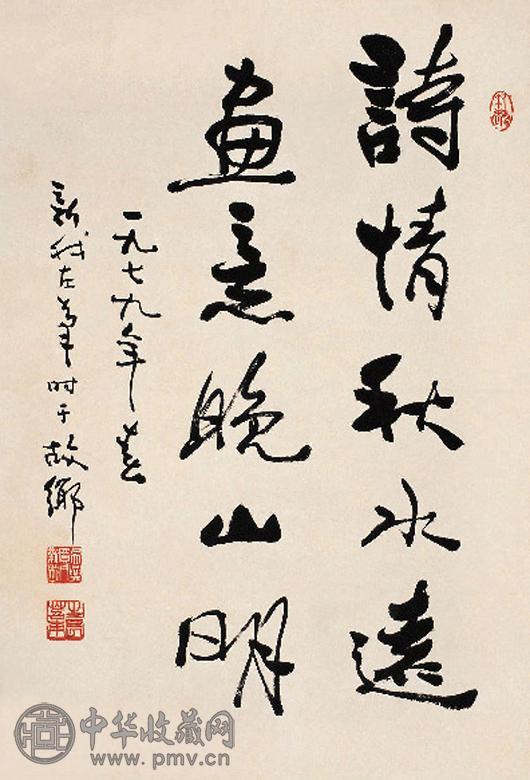 詩情秋水遠
畫意晚山明
一九七九年春
新我左筆时于故鄉
中华收藏网
www.pmv.cn